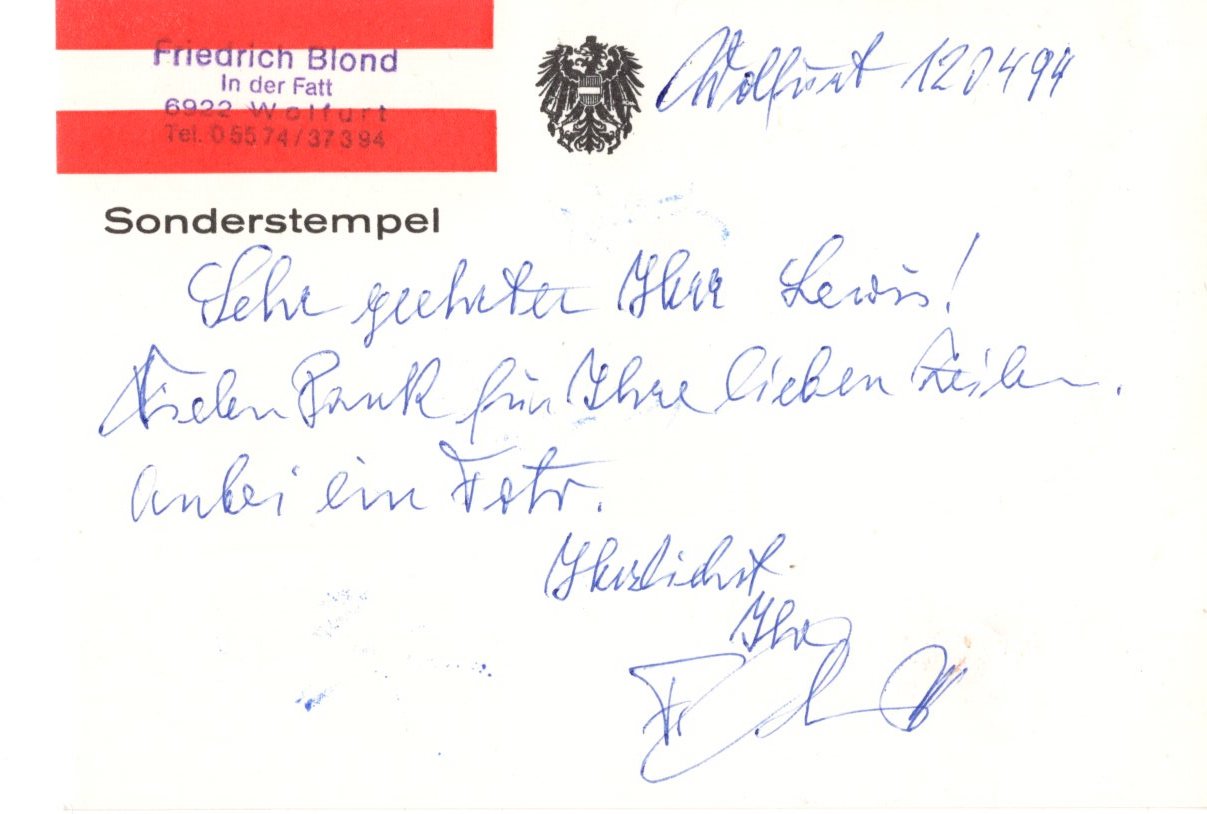 Friedrich Blond
In der Fatt
6922 Wolfurt
Tel. 05574/37394
Wolfurt 120494
Sonderstempel
Sehr geehrter Herr Lewis!
Vielen Dank für Ihre lieben Zeilen.
anbei ein Foto.
Herzlichst
Ihr